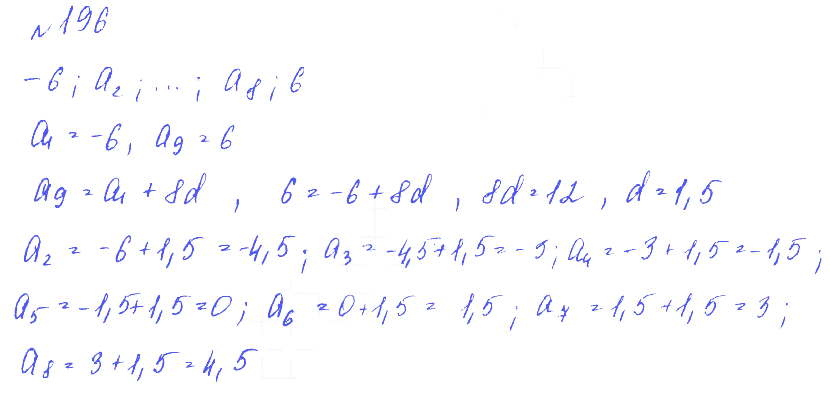 №196
-6; a₂; ...; a₈; 6
a₁ = -6, a₉ = 6
a₉ = a₁ + 8d, 6 = -6 + 8d, 8d = 12, d = 1,5
a₂ = -6 + 1,5 = -4,5; a₃ = -4,5 + 1,5 = -3; a₄ = -3 + 1,5 = -1,5;
a₅ = -1,5 + 1,5 = 0; a₆ = 0 + 1,5 = 1,5; a₇ = 1,5 + 1,5 = 3;
a₈ = 3 + 1,5 = 4,5